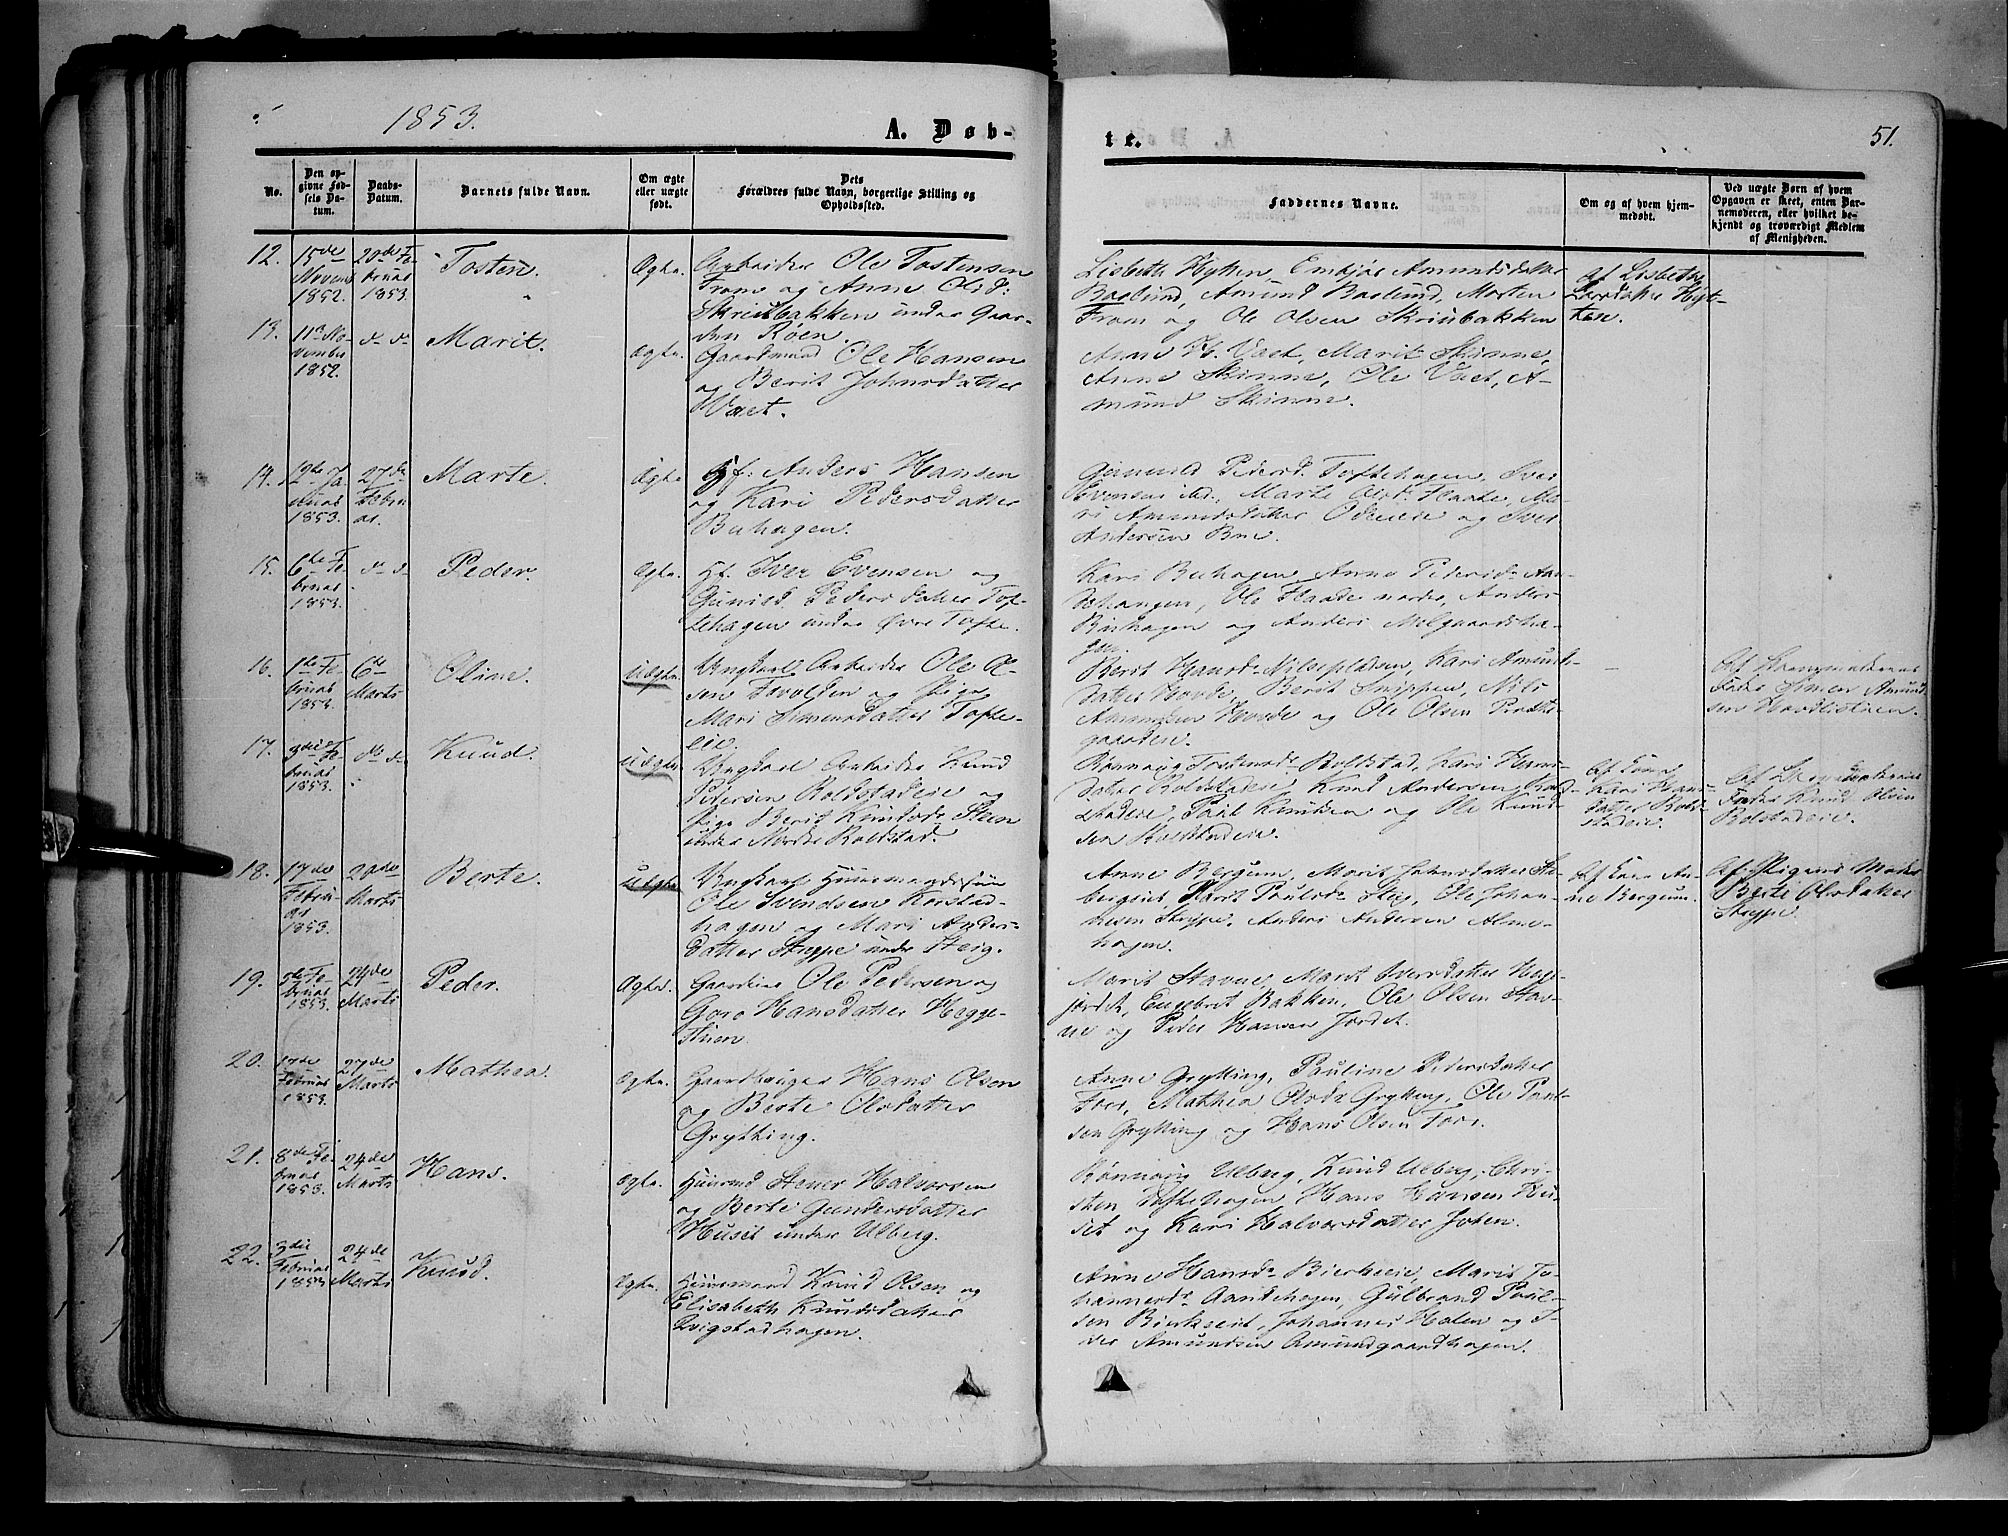 1853.
A. Døb-
te.
51.
No.
Den op-
givne Fød-
sels Da-
tum.
Daabs-
Datum.
Barnets fulde Navn.
Om ægte
eller uægte
født.
Dets
Forældres fulde Navn, borgerlige Stilling og
Opholdssted.
Faddernes Navne.
Om og af hvem hjem-
medøbt.
Ved uægte Børn af hvem
Opgaven er skeet, enten Bar-
nemoderen, eller hvilket be-
kjendt og troværdigt Medlem
af Menigheden.
12.
15de
Novemb
1852.
20de Fe-
bruar
1853.
Tosten.
Ægte.
Arbeider Ole Tostensen
From og Anne Olsd:
Skriubakken under Gaar-
den Röen.
Lisbeth Hytten, Amundsdatter
Baglund, Amund Baglund, Morten
From og Ole Olsen Skriubakken
Af Lisbeth
Larsdatter Hyt-
ten.
13.
11te No-
vember
1852.
do do
Marit.
Ægte.
Gaardmand Ole Hansen
og Berit Johnsdatter
Vaet.
Anne H. Vaet, Marit Skinne,
Anne Skinne, Ole Vaet, A-
mund Skinne.
14.
12te Ja-
nuar
1853.
27de
Febru-
ar.
Marte.
Ægte.
Hf. Anders Hansen
og Kari Pedersdatter
Buhagen.
Gunnild Pedersd. Toftehagen, Iver
Evensen ibd., Marte Olsdr Flaate, Ma-
ri Amundsdatter Odeneie og Iver
Andersen Bue.
15.
6te Fe-
bruar
1853.
do do
Peder.
Ægte.
Hf. Iver Evensen og
Gunild Pedersdatter Tof-
tehagen under Øvre Tofte.
Kari Buhagen, Anne Pedersdr
Ole Flaate nordre, Anders
Buhagen og Anders Melgaardsha-
gen
16.
1te Fe-
bruar
1853.
6te
Marts
Oline.
Uægte.
Ungkarl Arbeider Ole Ol-
sen og Pige
Mari Simensdatter Tofte-
eie.
Berit Hansdr Nilsepladsen, Kari Amunds-
datter Hovde, Berit Snippen, Nils
Amundsen Hovde og Ole Olsen Præste-
gaarden.
Af
Fader Simen Amund-
sen
17.
3die Fe-
bruar
1853.
do do
Knud.
Uægte.
Ungkarl Arbeider Knud
Pedersen Boldstadeie og
Pige Berit Knudsdr Steen
under Nordre Boldstad.
Rønnaug Tostensdr Boldstad, Kari Hans-
datter Boldstadeie, Knud Andersen Bold-
stadeie, Paul Knudsen og Ole Knud-
sen Boldstadeie.
Af
Kari Hans-
datter Bold-
stadeie.
Af
Fader Knud Olsen
Bolstadeie.
18.
17de
Febru-
ar
1853.
20de
Marts
Berte.
Uægte.
Ungkarl Huusmandssøn
Ole Svendsen Korstad-
hagen og Mari Anders-
datter Steppe under Steig.
Anne Bergum, Marit Johnsdatter
Marit Paulsdr Steig, Ole Johan-
nesen Steppe, Anders Andersen Alme-
hagen.
Af An-
ne Bergum.
Af Pigens Moder
Berte Olsdatter
Steppe.
19.
5te Fe-
bruar
1853.
24de
Marts
Peder.
Ægte.
Gaardbr. Ole Pedersen og
Goro Hansdatter Hegge-
Marit Stavne, Marit Iversdatter
jordet, Engebret Bakken, Ole Olsen Stav-
ne og Peder Hansen Jordet.
20.
17de
Februar
1853.
27de
Marts
Mathea.
Ægte.
Gaardbruger Hans Olsen
og Berte Olsdatter
Grytting.
Anne Grytting, Pauline Pedersdatter
Forr, Mathea Olsdr Grytting, Ole Paul-
sen Grytting og Hans Olsen Forr.
21.
8de Fe-
bruar
1853.
24de
Marts
Hans.
Ægte.
Huusmd Stener Halvorsen
og Berte Gundersdatter
Huset under Ulberg.
Rønnaug Ulberg, Knud Ulberg, Chri-
sten Toftehagen, Hans Hansen Hu-
set og Kari Halvorsdatter
22.
3die
Februar
1853
24de
Marts
Knud.
Ægte.
Huusmand Knud Olsen og
Elisabeth Knudsdatter
Qvigstadhagen.
Anne Hansdr Bierkeeie, Marit Jo-
hannesdr Aandehagen, Gulbrand Poul-
sen Bierkeeie, Johannes Holen og I-
ver Amundsen Amundgaardhagen.